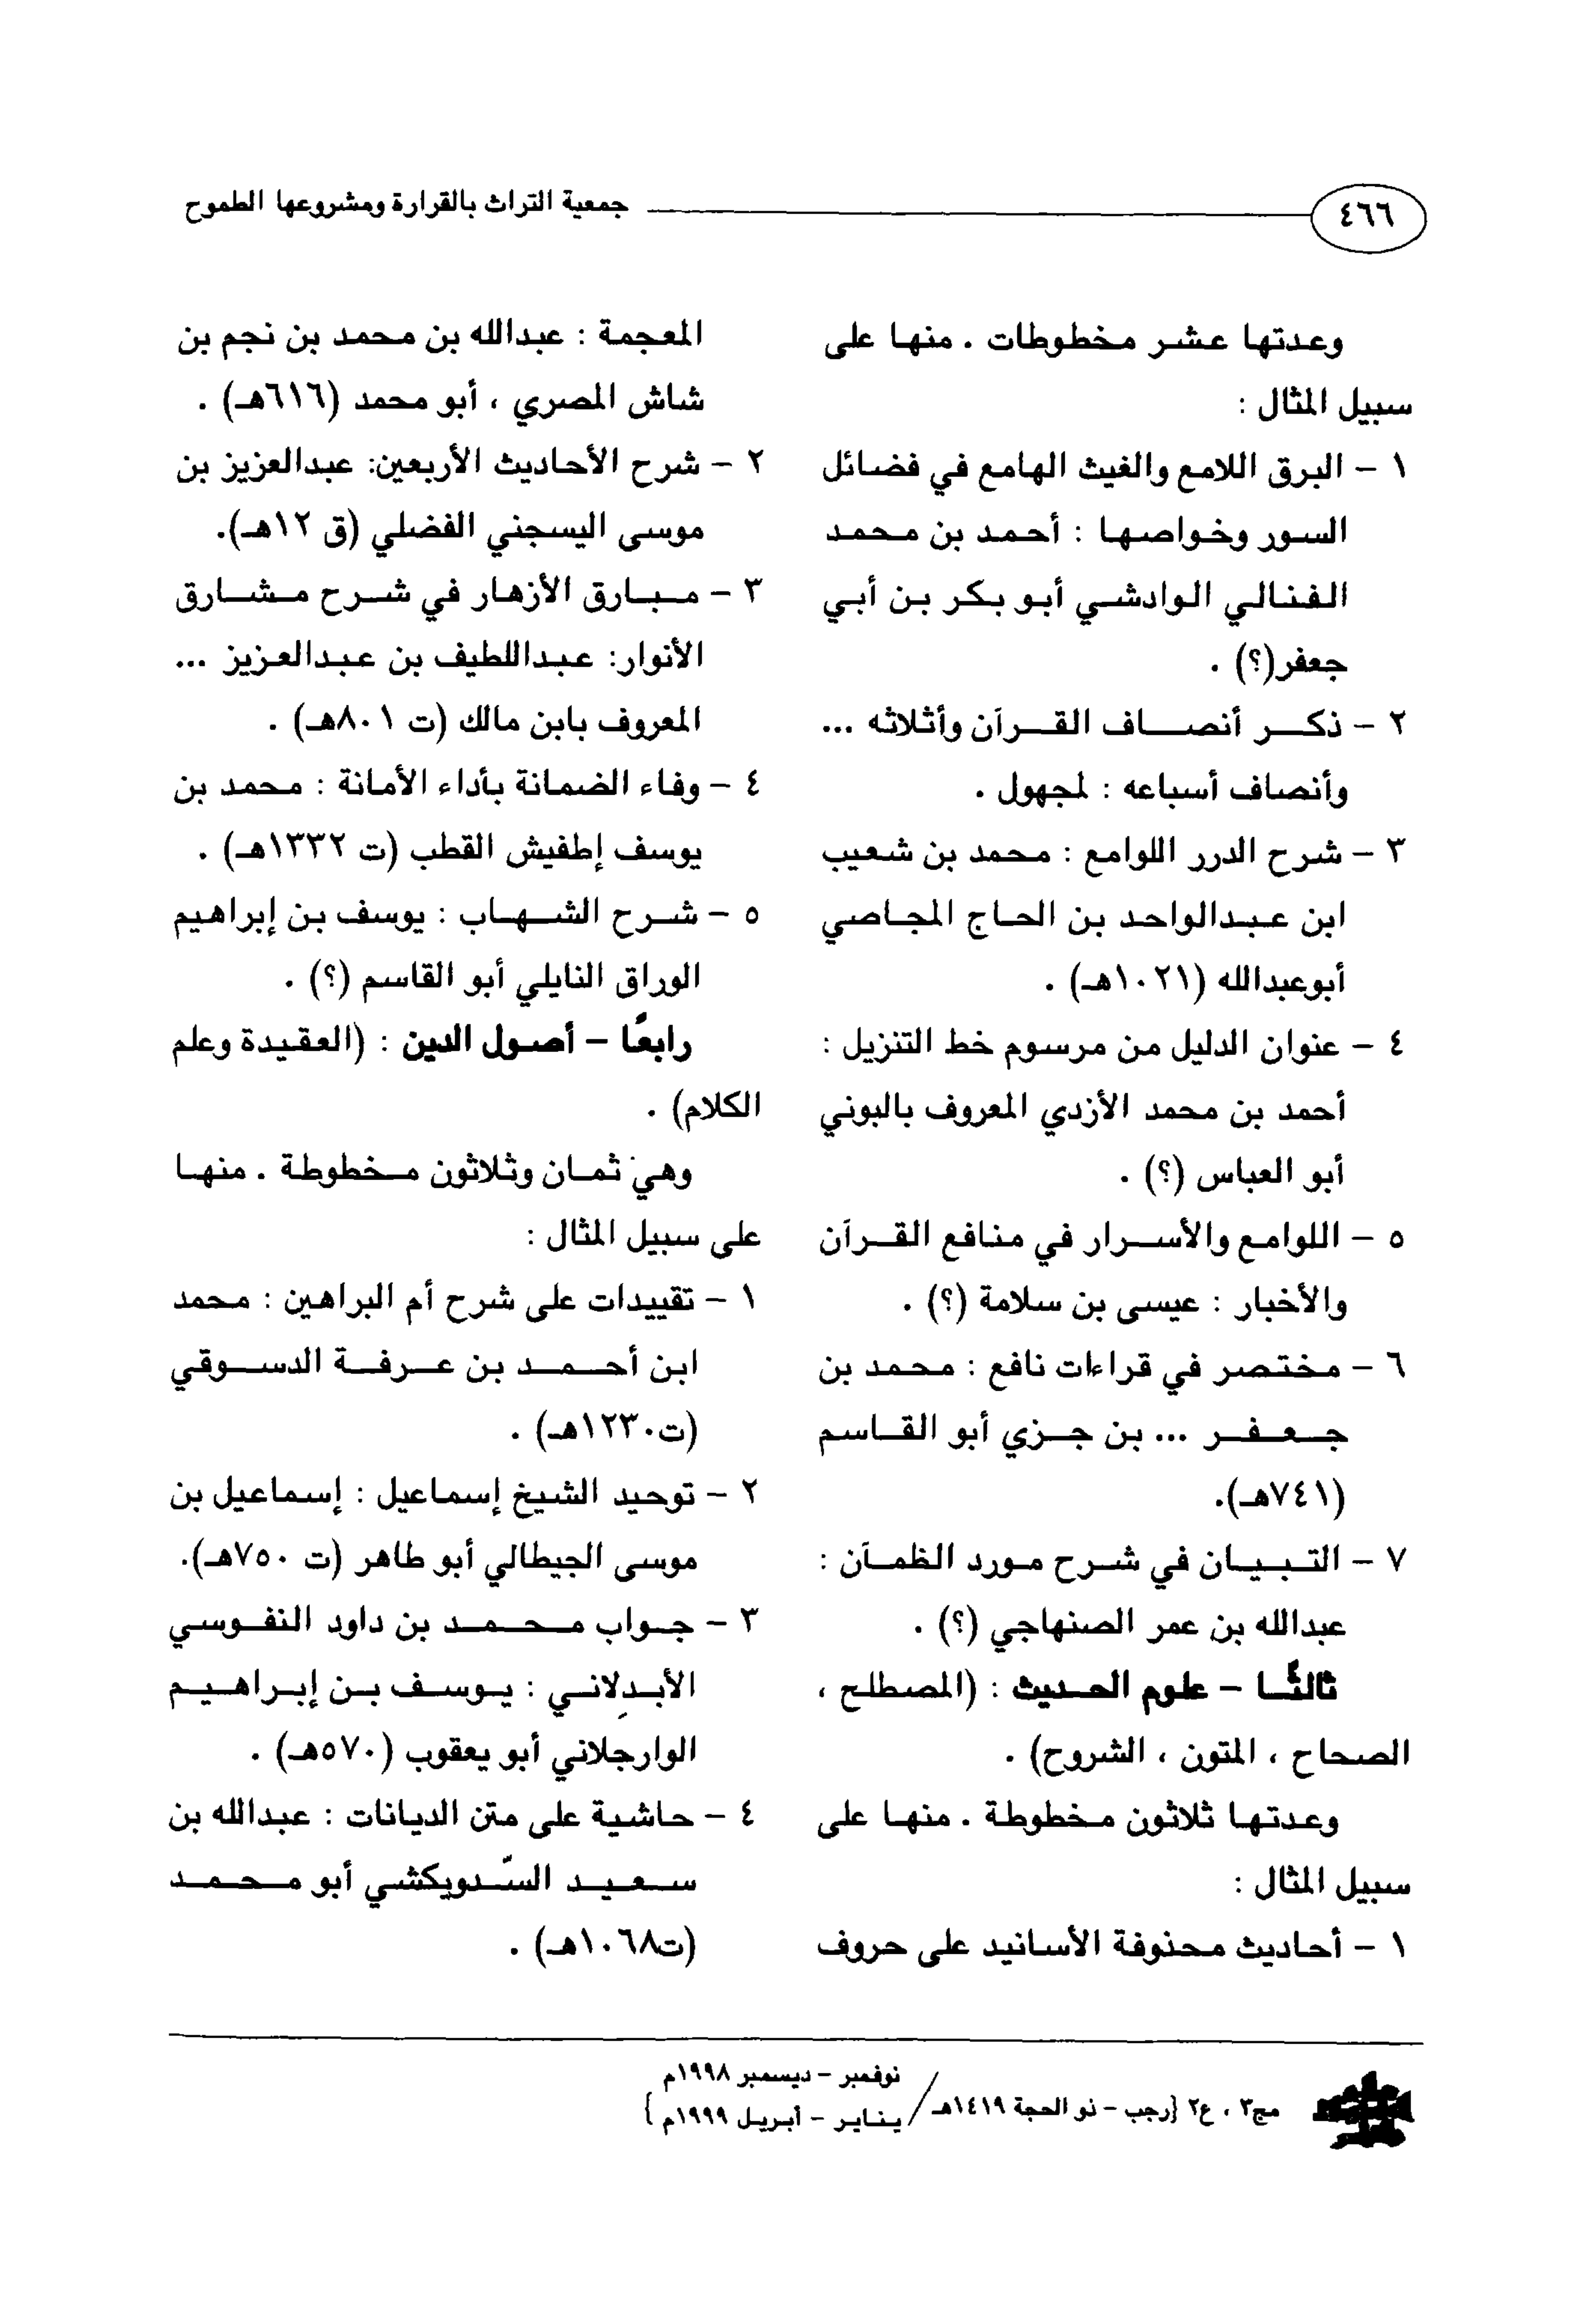 ٤٦٦
جمعية التراث بالقرارة ومشروعها الطموح
وعدتها عشر مخطوطات . منها على
سبيل المثال :
١ - البرق اللامع والغيث الهامع في فضائل
السور وخواصها : أحمد بن محمد
الفنالي الوادشي أبو بكر بن أبي
جعفر(؟) .
٢ - ذكر أنصاف القرآن وأثلاثه ...
وأنصاف أسباعه : لمجهول .
٣ - شرح الدرر اللوامع : محمد بن شعيب
ابن عبدالواحد بن الحاج المجاصي
أبوعبدالله (١٠٢١هـ) .
٤ - عنوان الدليل من مرسوم خط التنزيل :
أحمد بن محمد الأزدي المعروف بالبوني
أبو العباس (؟) .
٥ - اللوامع والأسرار في منافع القرآن
والأخبار : عيسى بن سلامة (؟) .
٦ - مختصر في قراءات نافع : محمد بن
جعفر ... بن جزي أبو القاسم
(٧٤١هـ).
٧ - التبيان في شرح مورد الظمآن :
عبدالله بن عمر الصنهاجي (؟) .
ثالثًا - علوم الحديث : (المصطلح ،
الصحاح ، المتون ، الشروح) .
وعدتها ثلاثون مخطوطة . منها على
سبيل المثال :
١ - أحاديث محذوفة الأسانيد على حروف
المعجمة : عبدالله بن محمد بن نجم بن
شاش المصري ، أبو محمد (٦١٦هـ) .
٢ - شرح الأحاديث الأربعين: عبدالعزيز بن
موسى اليسجني الفضلي (ق ١٢هـ).
٣ - مبارق الأزهار في شرح مشارق
الأنوار: عبداللطيف بن عبدالعزيز ...
المعروف بابن مالك (ت ٨٠١هـ) .
٤ - وفاء الضمانة بأداء الأمانة : محمد بن
يوسف إطفيش القطب (ت ١٣٣٢هـ) .
٥ - شرح الشهاب : يوسف بن إبراهيم
الوراق النايلي أبو القاسم (؟) .
رابعًا - أصول الدين : (العقيدة وعلم
الكلام) .
وهي ثمان وثلاثون مخطوطة . منها
على سبيل المثال :
١ - تقييدات على شرح أم البراهين : محمد
ابن أحمد بن عرفة الدسوقي
(ت١٢٣٠هـ) .
٢ - توحيد الشيخ إسماعيل : إسماعيل بن
موسى الجيطالي أبو طاهر (ت ٧٥٠هـ).
٣ - جواب محمد بن داود النفوسي
الأبدلاني : يوسف بن إبراهيم
الوارجلاني أبو يعقوب (٥٧٠هـ) .
٤ - حاشية على متن الديانات : عبدالله بن
سعيد السّدويكشي أبو محمد
(ت١٠٦٨هـ) .
مج٣ ، ع٢ {رجب - ذو الحجة ١٤١٩هـ/
نوفمبر - ديسمبر ١٩٩٨م
يناير - أبريل ١٩٩٩م }